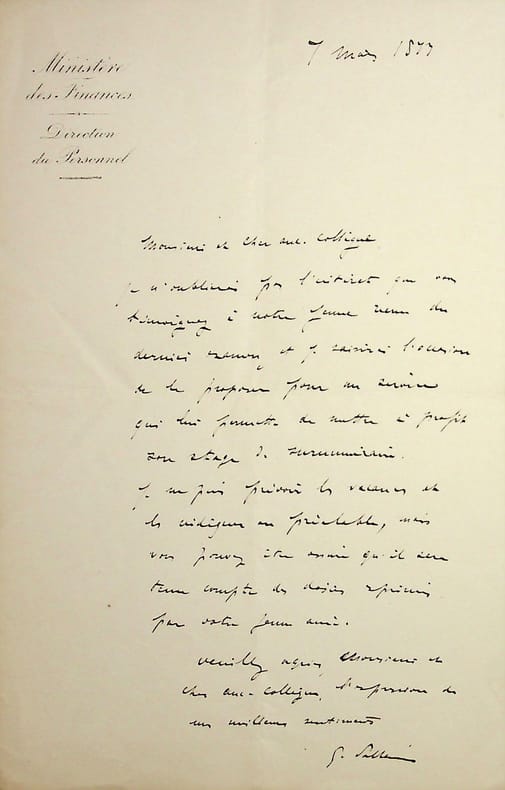 Ministère
des Finances
Direction
du Personnel
7 mars 1877
Monsieur et cher anc. Collègue
je n'oublierai pas l'intérêt que vous
témoignez à notre jeune venu du
dernier examen et je saisirai l'occasion
de le proposer pour un service
qui lui permette de mettre à profit
son stage de surnuméraire.
Je ne puis prévoir les vacances et
les indiquer au préalable, mais
vous pouvez être assuré qu'il sera
tenu compte des désirs exprimés
par votre jeune ami.
Veuillez agréer, Monsieur et
cher anc. Collègue, l'expression de
mes meilleurs sentiments
G.